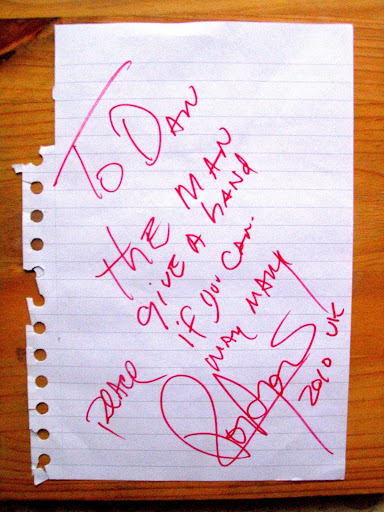 To Dan
the man
give a hand
if you can.
way many
Peace
2010 UK